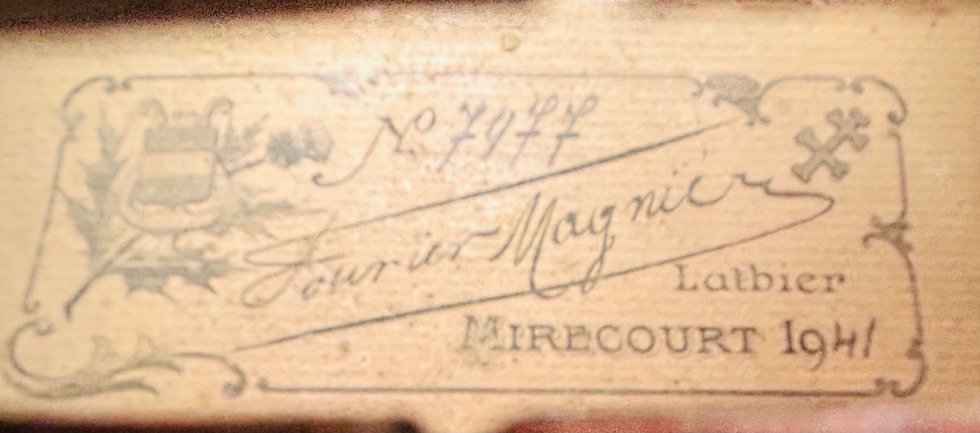 No 7977
Fourier Magnié
Luthier
MIRECOURT 1941